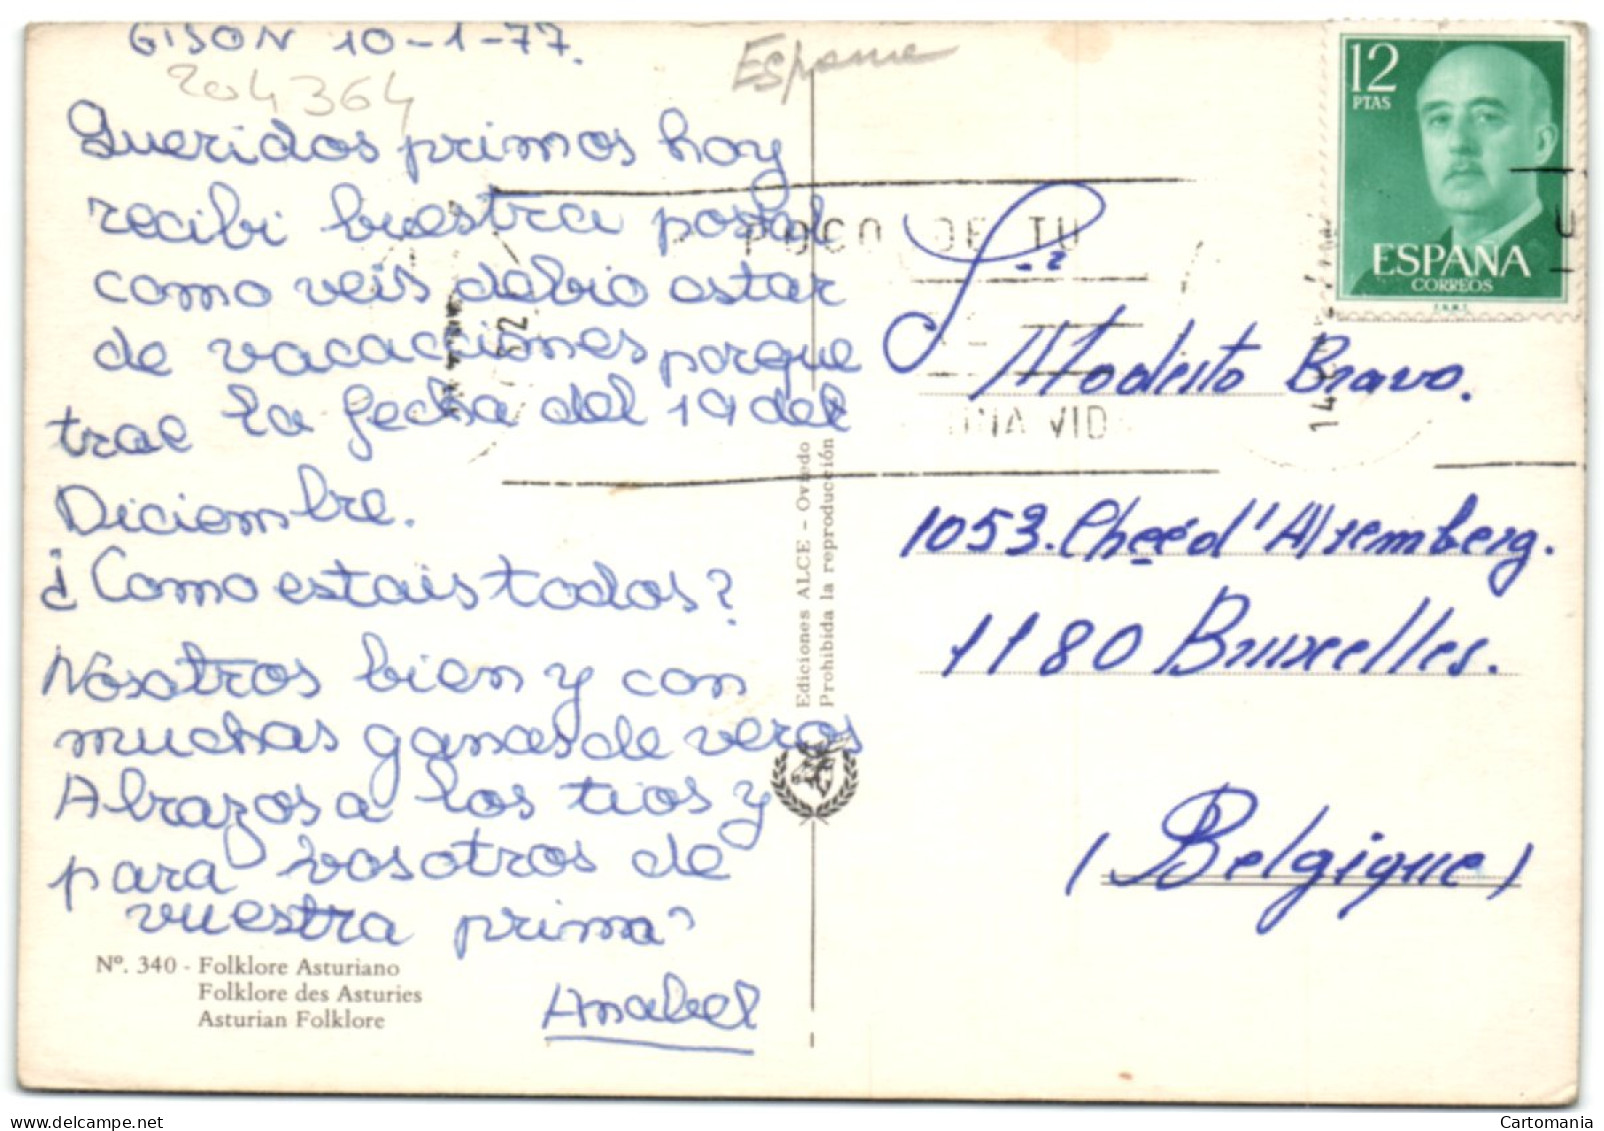 GIJON 10-1-77.
204364
Espame
Queridos primos hoy
recibi buestra postal
como veis debio estar
de vacacciones porque
trae la fecha del 19 del
Diciembre.
¿Como estais todos?
Nosotros bien y con
muchas ganas de veros
Abrazos a los tios y
para vosotros de
vuestra prima
Anabel
Nº. 340 - Folklore Asturiano
Folklore des Asturies
Asturian Folklore
Ediciones ALCE - Oviedo
Prohibida la reproducción
POCO DE TU
UNA VID
12
PTAS
ESPAÑA
CORREOS
F.N.M.T.
Modesto Bravo.
1053. Cheéd'Alremberg.
1180 Bruxelles.
(Belgique)
Cartomania